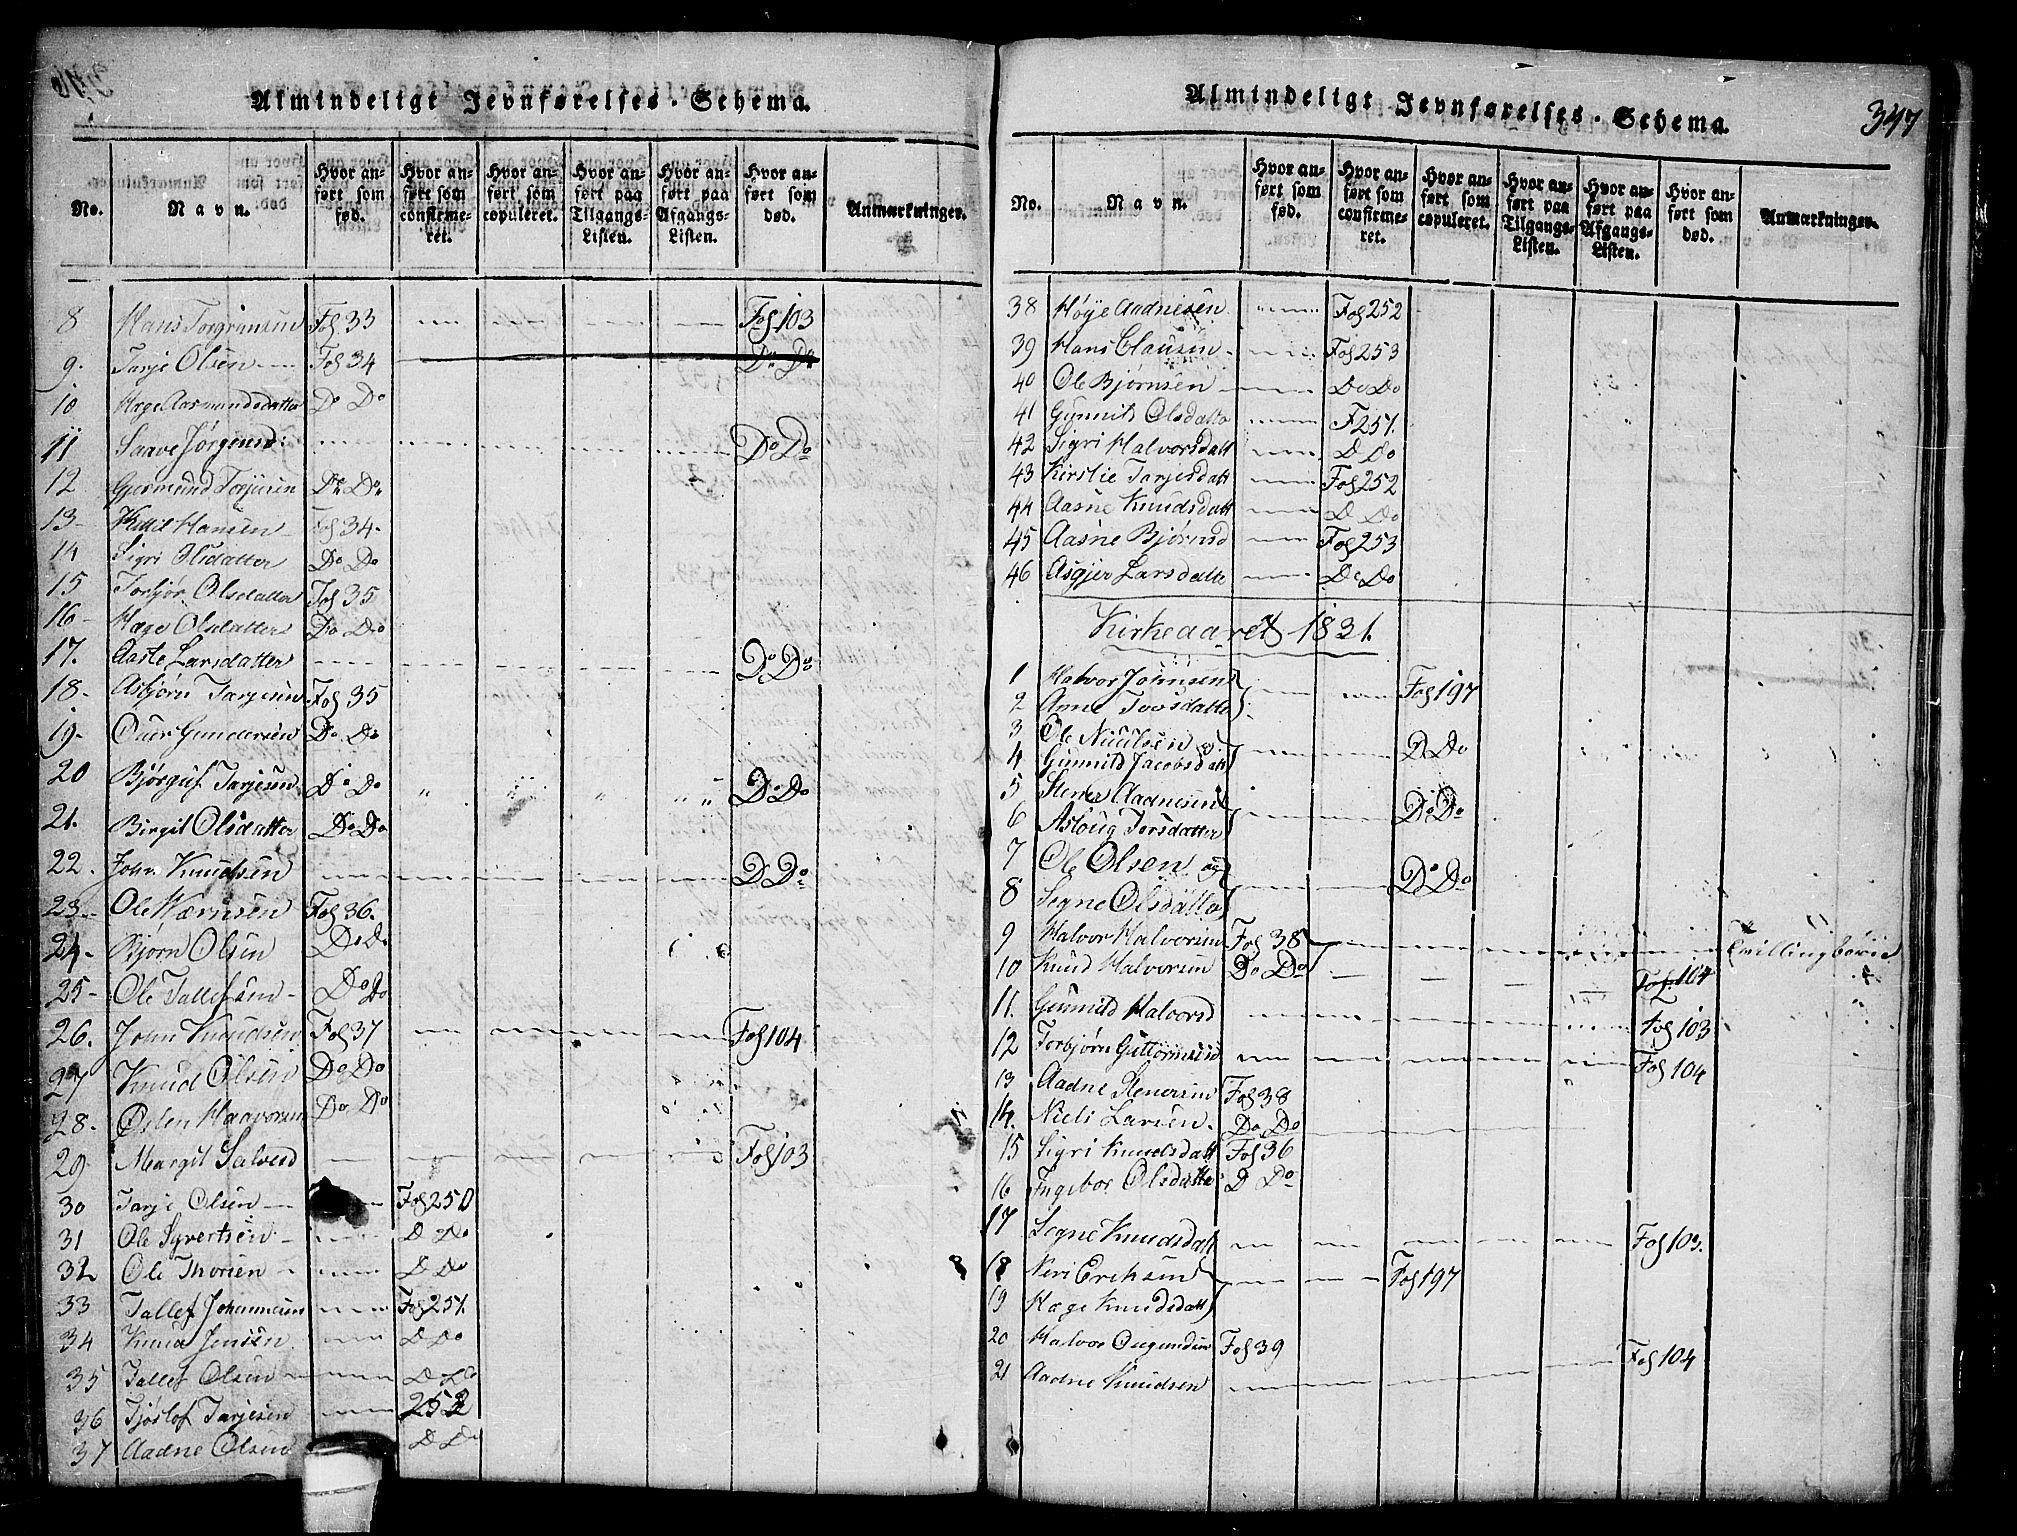 Almindeligt Jevnførelses-Schema.
No.
Navn.
Hvor an-
ført som
fød.
Hvor an-
ført som
confirme-
ret.
Hvor an-
ført som
copuleret.
Hvor an-
ført paa
Tilgangs-
Listen.
Hvor an-
ført paa
Afgangs-
Listen.
Hvor an-
ført som
død.
Anmærkninger.
8 Hans Torgrimsen Fol 33 Fol 103
9. Tarje Olsen Fol 34 Do Do
10 Hæge Aasmundsdatter Do Do
11 Saave Jørgensd: Do Do
12 Gjermund Torjusen Do Do
13- Kittil Hansen Fol 34-
14 Sigri Olsdatter Do Do
15 Torbjør Olsdatter Fol 35
16- Hæge Olsdatter Do Do
17. Aaste Larsdatter Do Do
18- Asbjørn Tarjesen Fol 35
19- Ouer Gundersen Do Do
20 Bjørguf Tarjesen Do Do Do Do
21. Birgit Olsdatter Do Do
22. John Knudsen D Do
23- Ole Værnsen Fol 36.
24- Bjørn Olsen Do Do
25- Ole Tallefsen Do Do
26. John Knudsen Fol 37 Fol 104
27 Knud Olsen Do Do
28. Østen Haavorsen Do Do
29 Margit Salvesd Fol 103
30 Tarje Olsen Fol 250
31 Ole Syvertsen D Do
32 Ole Thorsen D Do
33 Tallef Johannesen Fol 251.
34 Knud Jensen D Do
35 Tallef Olsen D Do
36 Tjøstof Tarjesen 252
37 Aadne Olsen D Do
Almindeligt Jevnførelses-Schema. 347
No.
Navn.
Hvor an-
ført som
fød.
Hvor an-
ført som
confirme-
ret.
Hvor an-
ført som
copuleret.
Hvor an-
ført paa
Tilgangs-
Listen.
Hvor an-
ført paa
Afgangs-
Listen.
Hvor an-
ført som
død.
Anmærkninger.
38 Høije Aadnesen Fol 252
39 Hans Clausen Fol 253
40 Ole Bjørnsen Do Do
41 Gunnild Olsdatte F 251.
42 Sigri Halvorsdatt D Do
43 Kirstie Tarjesdatt Fol 252
44 Aasne Knudsdatt D Do
45 Aasne Bjørnsd Fol 253
46 Asgjer Larsdatte Do Do
Kirkeaaret 1821.
1 Halvor Johnsen
2 Anne Tovsdatte Fol 197
3 Ole Nuulsen og
4 Gunnild Jacobsdatt D Do
5 Stener Aadnesen
6 Aslaug Torsdatter Do Do
7 Ole Olsen og
8 Segne Olsdatte Do Do
9 Halvor Halvorsen Fol 38 Tvillingbørn
10 Knud Halvorsen Do Do Fol. 104
11. Gunnild Halvorsd Fol 103
12 Torbjørn Guttormsen Fol 104
13 Aadne Stenersen Fol 38
14. Niels Larsen. Do Do
15 Sigri Knudsdatt Fol 36
16 Ingebor Olsdatte D Do
17 Segne Knudsdatt Fol 103.
18 Neri Eriksen Fol 197
19 Hæge Knudsdatt
20 Halvor Ougundsen Fol 39
21 Aadne Knudsen Fol 104